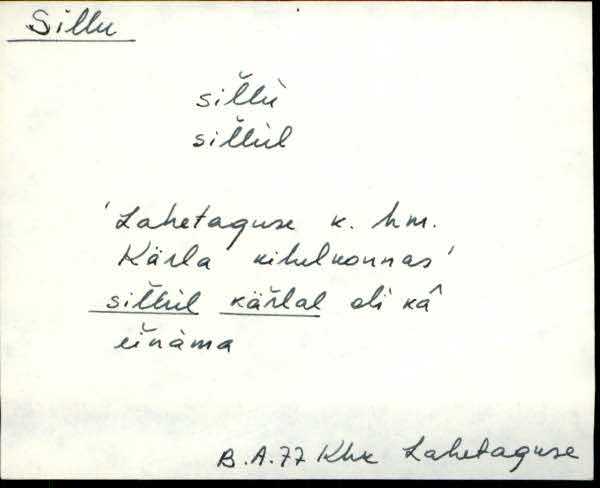 Sillu
sil̆lù
sil̆lùl
'Lahetaguse k. hm.
Kärla kihelkonnas'
sil̆lùl kär̆lal oli kâ
ein̆àma
B.A.77 Khk Lahetaguse